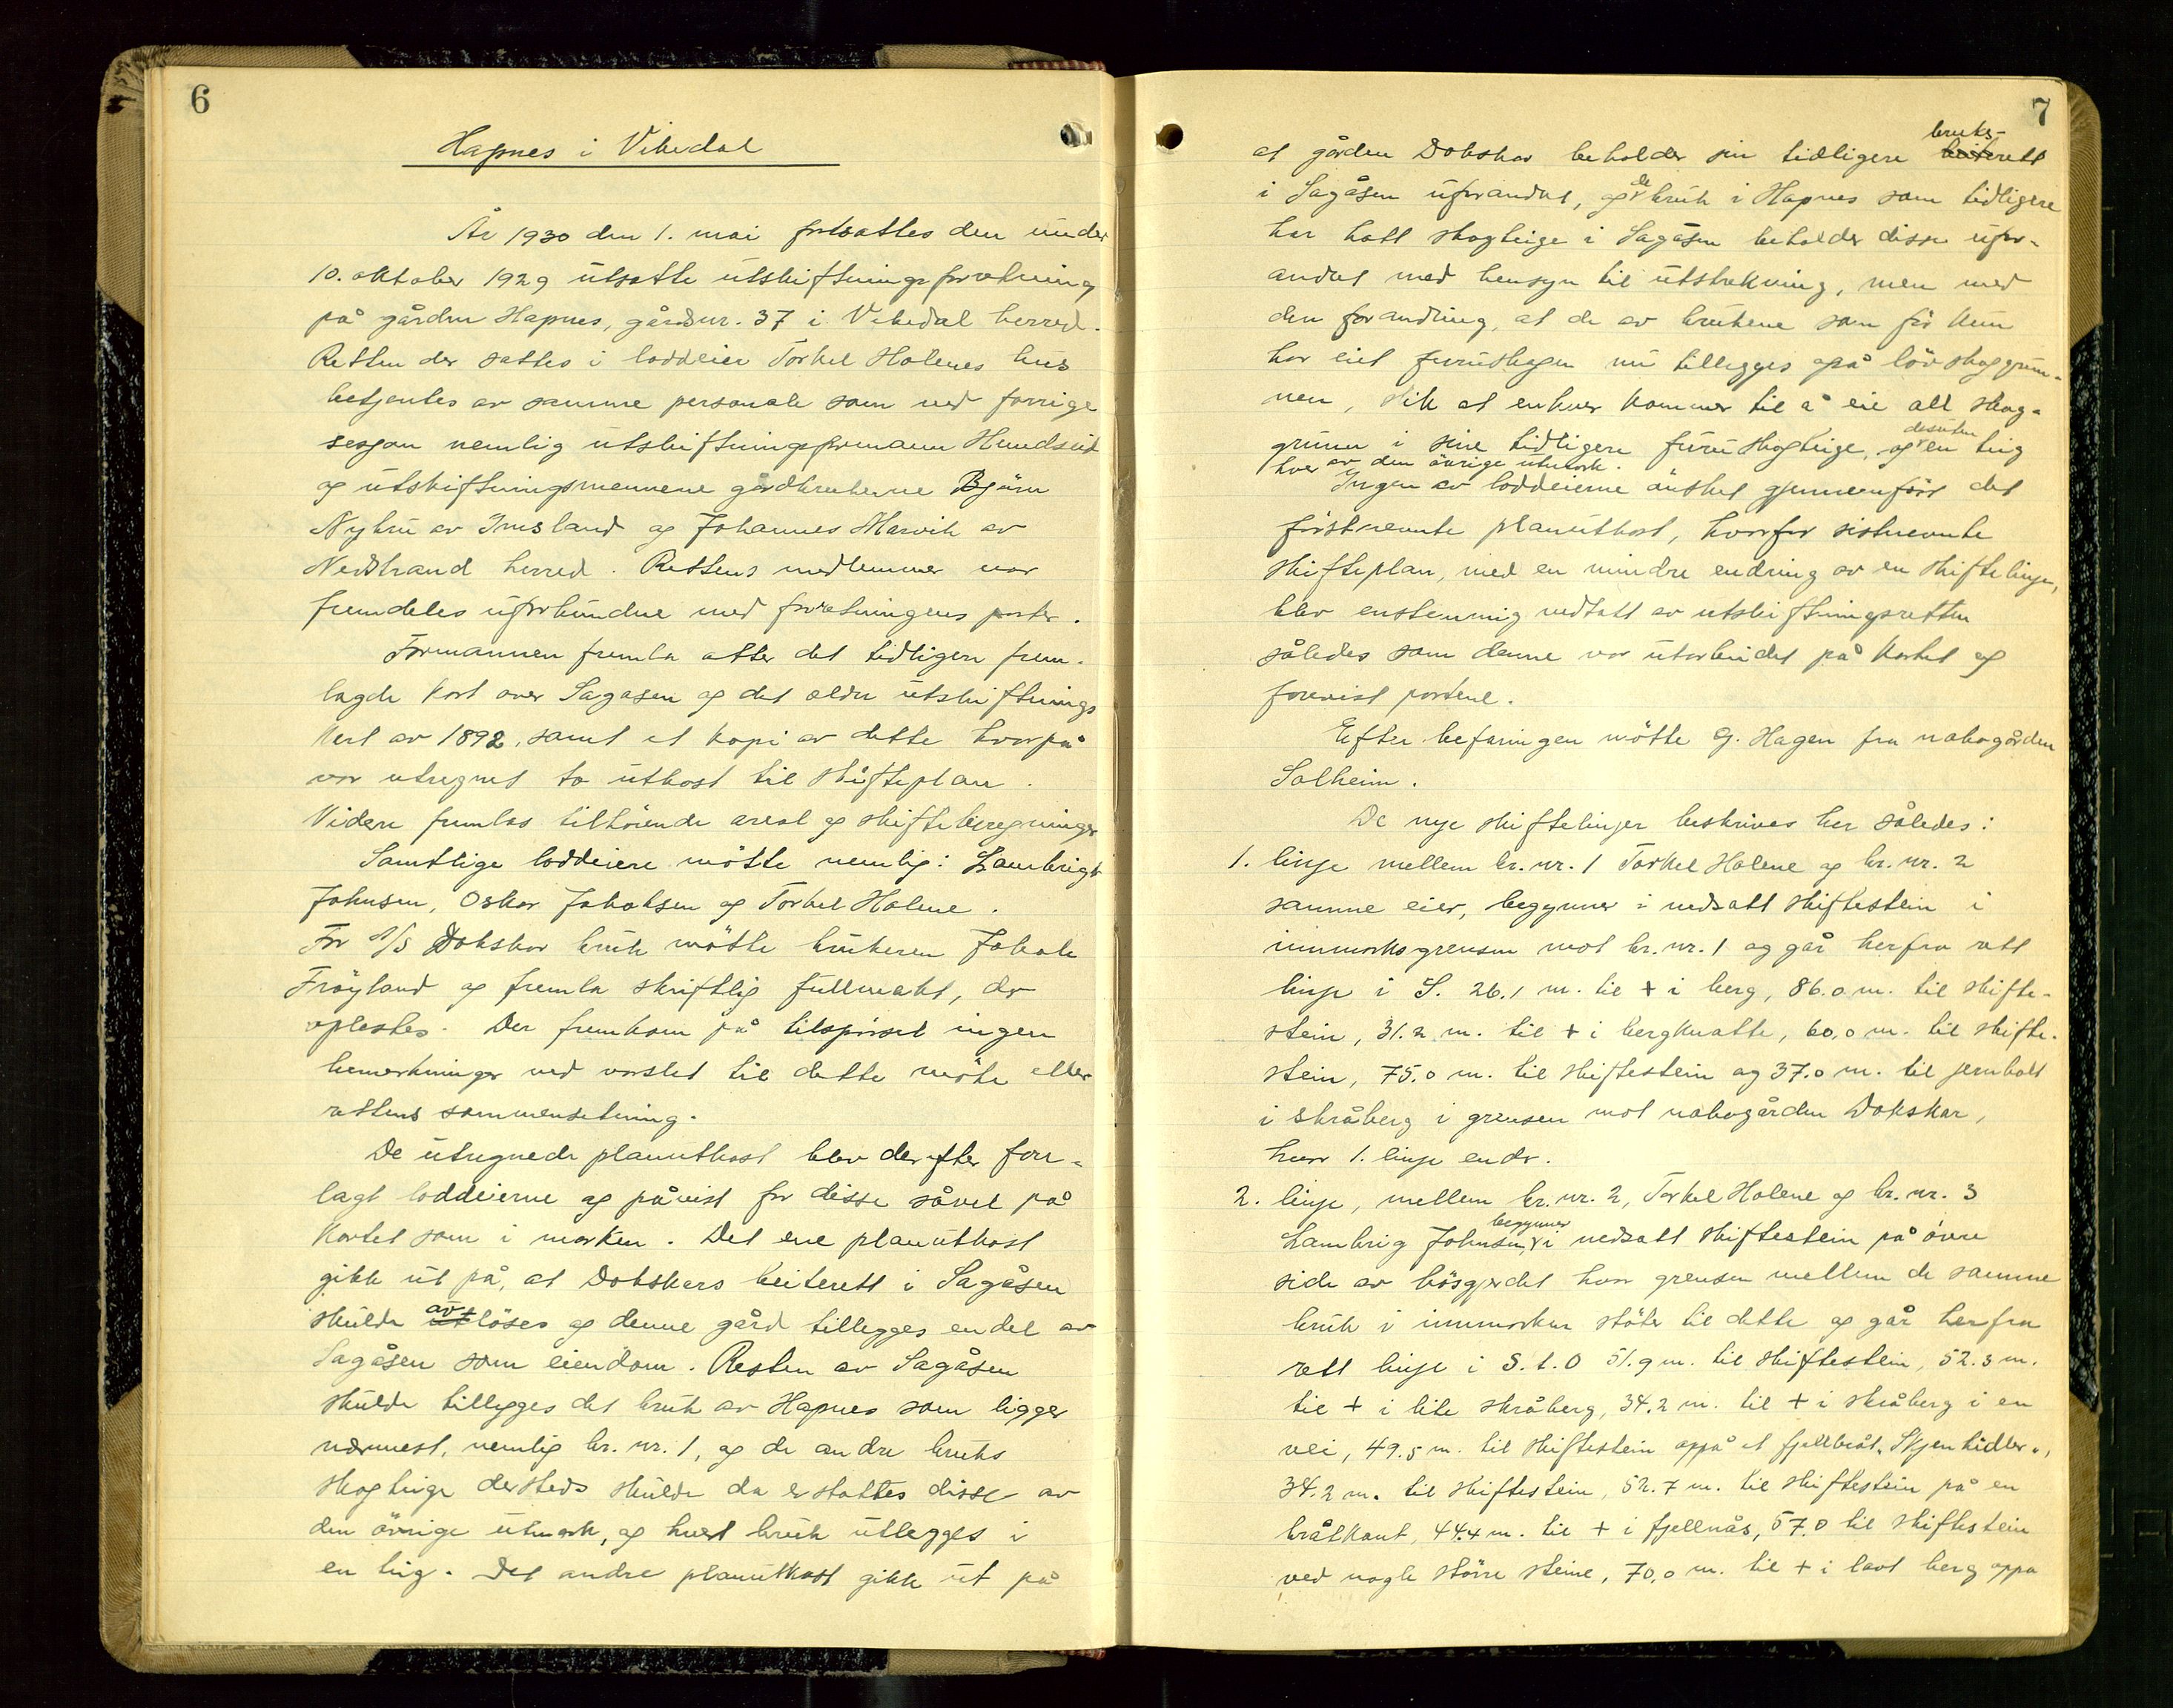 6
Hapnes i Vikedal
År 1930 den 1. mai fortsattes den under
10. oktober 1929 utsatte utskiftningsforretning
på gården Hapnes, gårdsnr. 37 i Vikedal herred.
Retten der sattes i loddeier Torkel Holenes hus
betjentes av samme personale som ved forrige
sesjon nemlig utskiftningsformann Hundseid
og utskiftningsmennene gårdbrukerne Bjørn
Nybru av Imsland og Johannes Marvik av
Nedstrand herred. Rettens medlemmer var
fremdeles uforbundne med forretningens parter.
Formannen fremla atter det tidligere frem-
lagde kart over Sagåsen og det eldre utskiftnings
kart av 1892, samt et kopi av dette hvorpå
var utregnet to utkast til skifteplan.
Videre fremlas tilhörende areal og skifteberegninger
Samtlige loddeiere mötte nemlig: Lambrigt
Johnsen, Oskar Jakobsen og Torkel Holene.
For A/S Dokskar bruk mötte brukeren Jakob
Fröyland og fremla skriftlig fullmakt, der
oplestes. Der fremkom på tilspörsel ingen
bemerkninger ved varslet til dette möte eller
rettens sammensetning.
De utregnede planutkast blev derefter fore-
lagt loddeierne og påvist for disse såvel på
kartet som i marken. Det ene planutkast
gikk ut på, at Dokskars beiterett i Sagåsen
skulde ut avlöses og denne gård tillegges en del av
Sagåsen som eiendom. Resten av Sagåsen
skulde tillegges det bruk av Hapnes som ligger
nærmest, nemlig br. nr. 1, og de andre bruks
skogteige dersteds skulde da erstattes disse av
den övrige utmark, og hvert bruk utlegges i
en teig. Det andre planutkast gikk ut på
7
at gården Dokskar beholder sin tidligere beite bruks-rett
i Sagåsen uforandret, og de bruk i Hapnes som tidligere
har hatt skogteige i Sagåsen beholder disse ufor-
andret med hensyn til utstrekning, men med
den forandring, at de av brukene som för kun
har eiet furuskogen nu tillegges også lövskoggrun-
nen, slik at enhver kommer til å eie all skog-
grunn i sine tidligere furuskogteige, og desuten en teig
hver av den övrige utmark.
Ingen av loddeierne önsket gjennemfört det
förstnevnte planutkast, hvorfor sistnevnte
skifteplan, med en mindre endring av en skiftelinje,
blev enstemmig vedtatt av utskiftningsretten
således som denne var utarbeidet på kartet og
forevist partene.
Efter befaringen mötte G. Hagen fra nabogården
Solheim.
De nye skiftelinjer beskrives her således:
1. linje mellem br. nr. 1 Torkel Holene og br. nr. 2
samme eier, begynner i nedsatt skiftestein i
innmarksgrensen mot br. nr. 1 og går herfra rett
linje i S. 26.1 m. til + i berg, 86.0 m. til skifte-
stein, 31.2 m. til + i bergknatte, 60.0 m. til skifte-
stein, 75.0 m. til skiftestein og 37.0 m. til jernbolt
i skråberg i grensen mot nabogården Dokskar,
hvor 1. linje ender.
2. linje, mellem br. nr. 2, Torkel Holene og br. nr. 3
Lambrig Johnsen, begynner i nedsatt skiftestein på övre
side av bösgjerdet hvor grensen mellem de samme
bruk i innmarken stöter til dette og går herfra
rett linje i S. t. O 51.9 m. til skiftestein, 52.3 m.
til + i lite skråberg, 34.2 m. til + i skråberg i en
vei, 49.5 m. til skiftestein oppå et fjellbråt "Skjenhidler",
34.2 m. til skiftestein, 52.7 m. til skiftestein på en
bråtkant, 44.4 m. til + i fjellnås, 57.0 til skiftestein
ved nogle större steine, 70.0 m. til + i lavt berg oppå